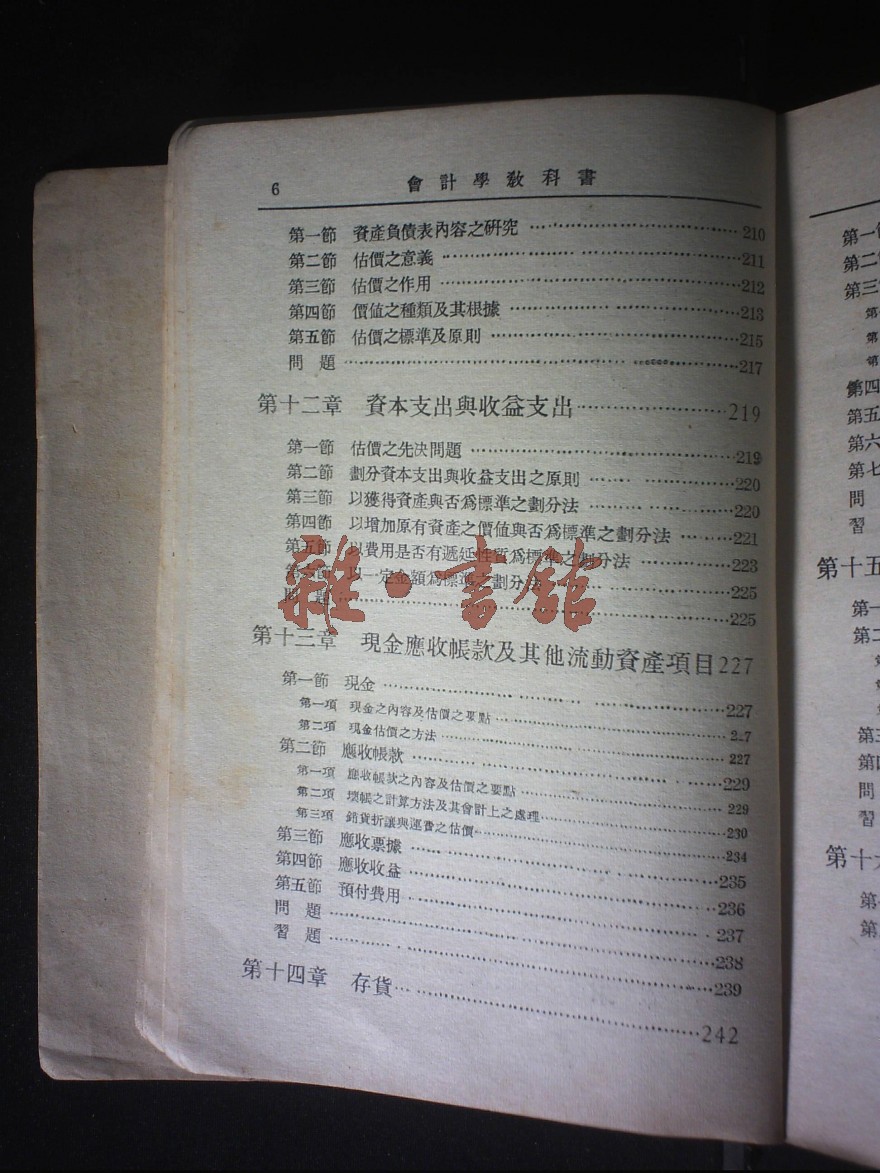 6 會計學教科書
第一節 資產負債表內容之研究 ……………… 210
第二節 估價之意義 ……………… 211
第三節 估價之作用 ……………… 212
第四節 價值之種類及其根據 ……………… 213
第五節 估價之標準及原則 ……………… 215
問題 ……………… 217
第十二章 資本支出與收益支出 ……………… 219
第一節 估價之先決問題 ……………… 219
第二節 劃分資本支出與收益支出之原則 ……………… 220
第三節 以獲得資產與否爲標準之劃分法 ……………… 220
第四節 以增加原有資產之價值與否爲標準之劃分法 ……………… 221
第五節 以費用是否有遞延性質爲標準之劃分法 ……………… 223
第六節 以一定金額爲標準之劃分法 ……………… 225
問題 ……………… 225
雜·書館
第十三章 現金應收帳款及其他流動資產項目 227
第一節 現金 ……………… 227
第一項 現金之內容及估價之要點 ……………… 227
第二項 現金估價之方法 ……………… 227
第二節 應收帳款 ……………… 229
第一項 應收帳款之內容及估價之要點 ……………… 229
第二項 壞帳之計算方法及其會計上之處理 ……………… 230
第三項 銷貨折讓與運費之估價 ……………… 234
第三節 應收票據 ……………… 235
第四節 應收收益 ……………… 236
第五節 預付費用 ……………… 237
問題 ……………… 238
習題 ……………… 239
第十四章 存貨 ……………… 242
第一
第二
第三
第
第
第
第四
第五
第六
第七
問
習
第十五
第一
第二
第三
第四
問
習
第十六
第
第